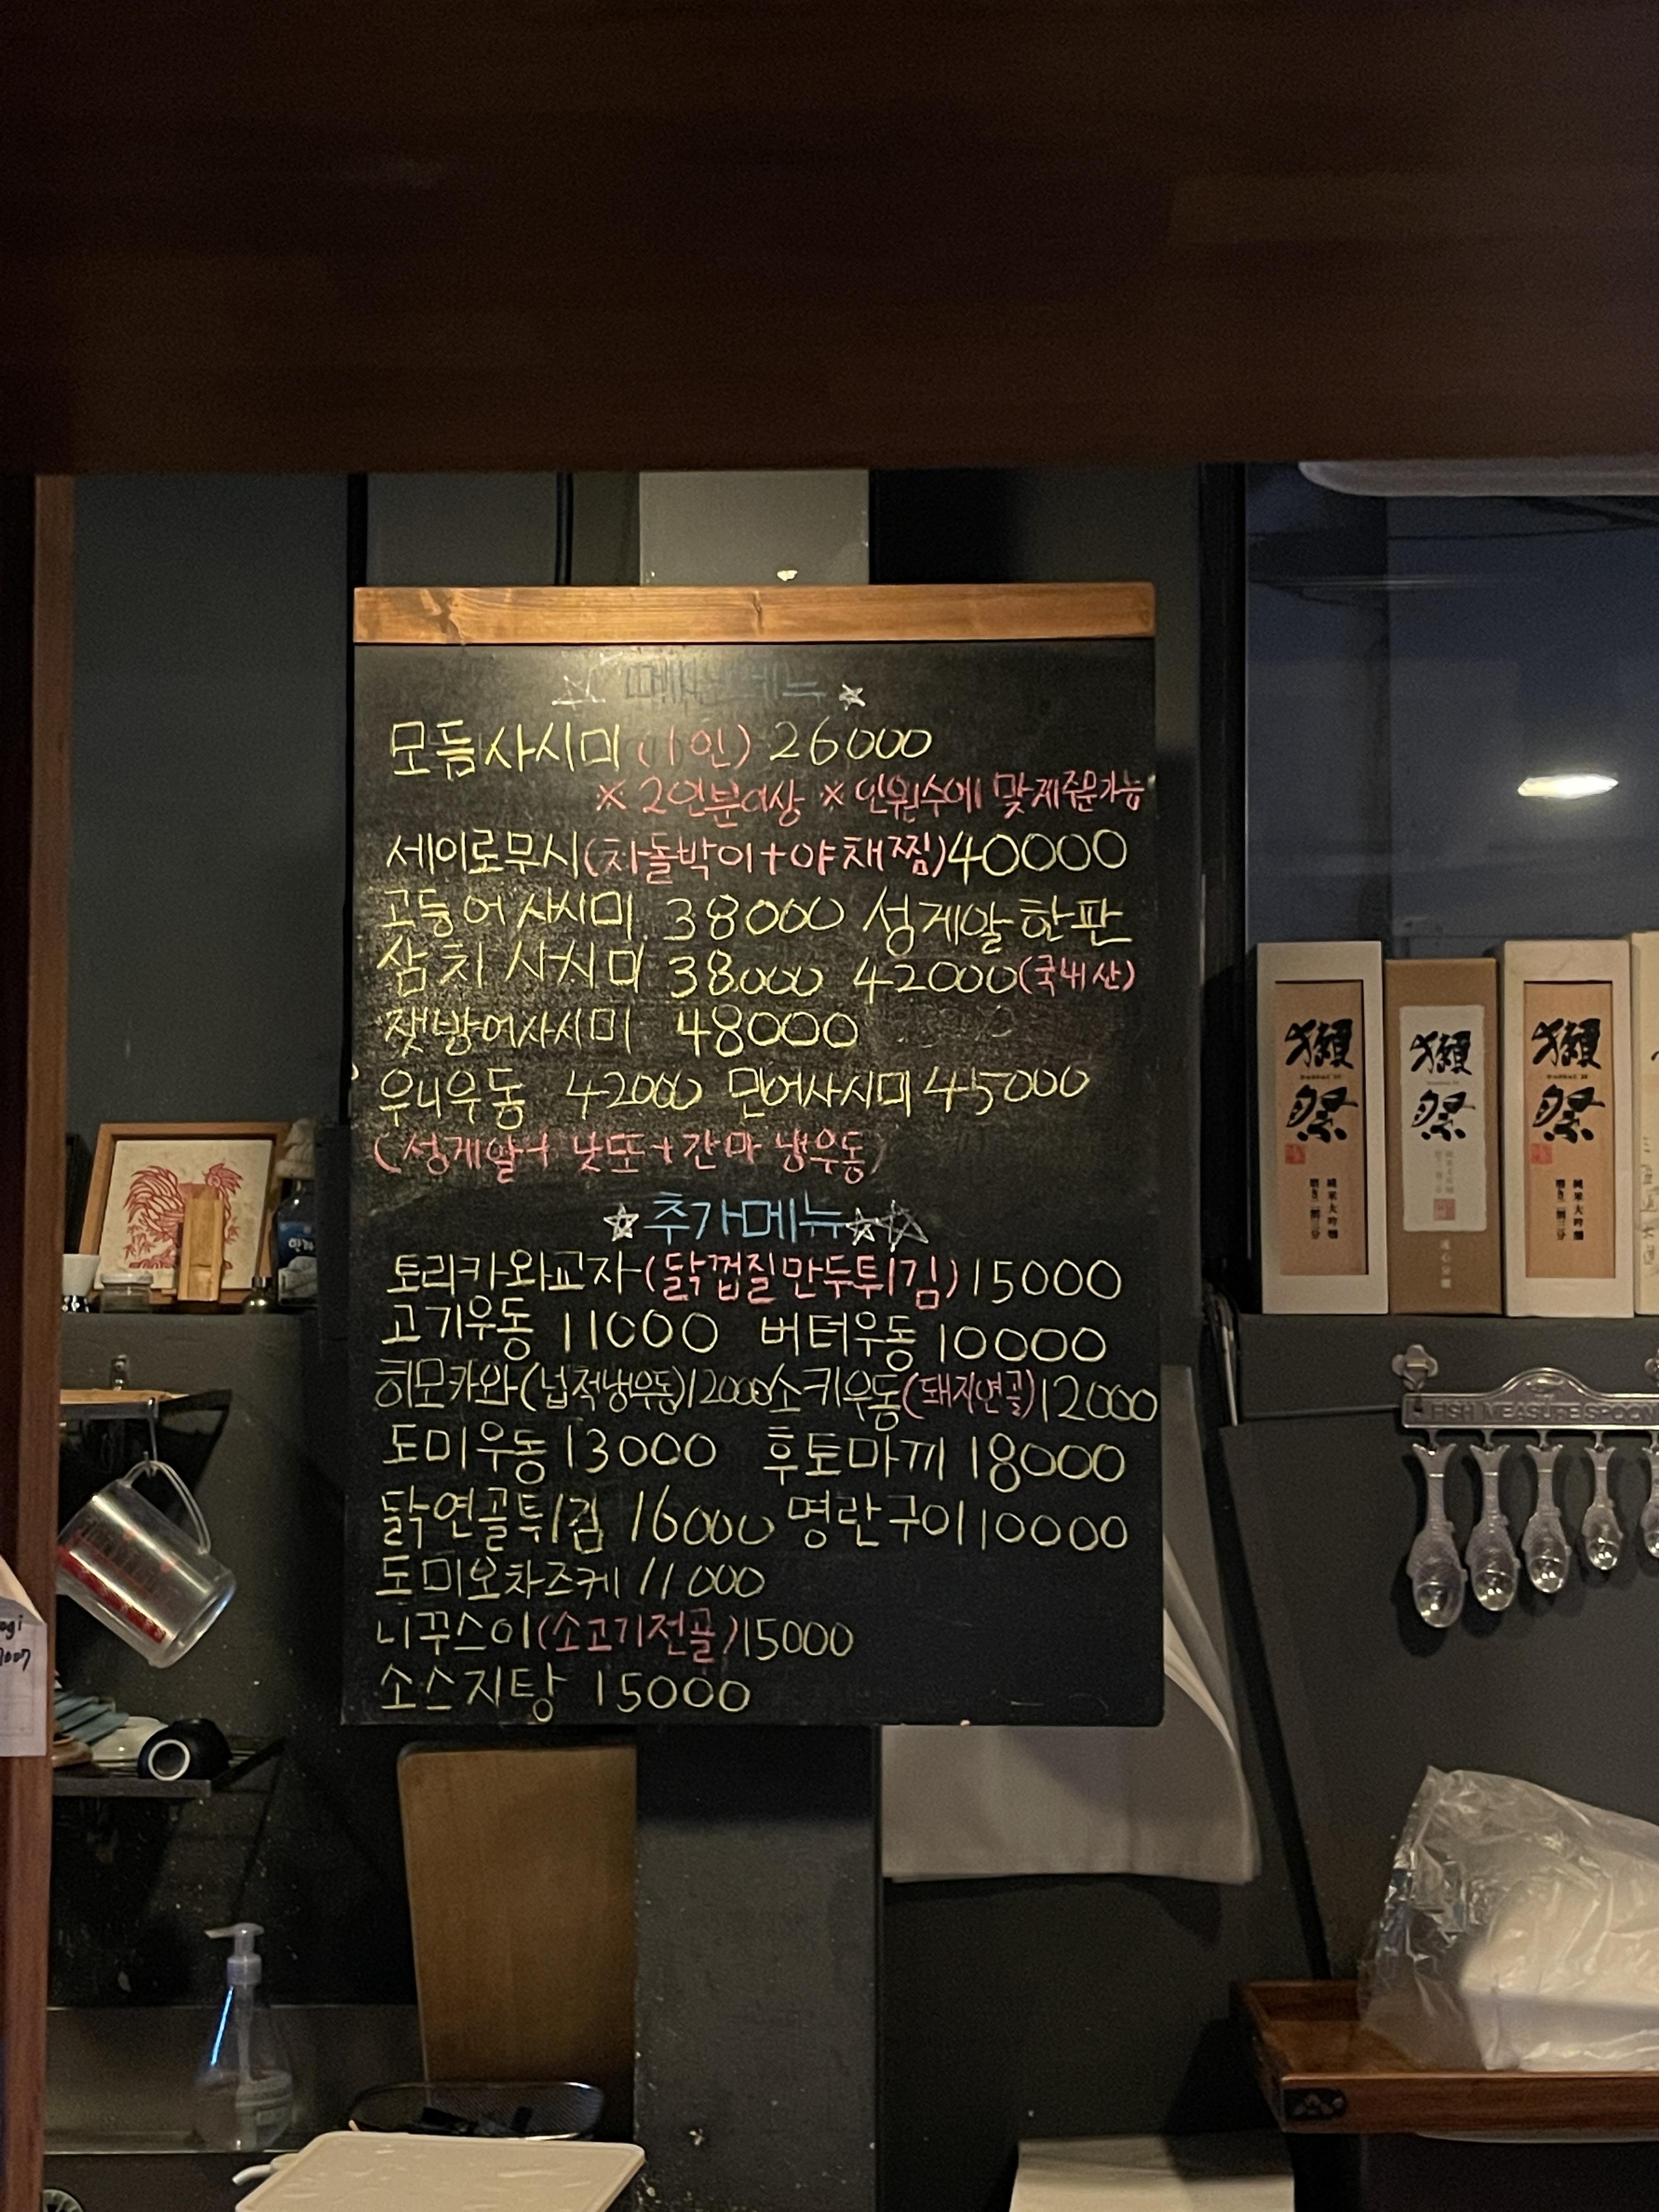 메인메뉴
모듬사시미 (1인) 26000
※ 2인분이상 ※ 인원수에 맞게주문가능
세이로무시(차돌박이+야채찜)40000
고등어사시미 38000 성게알한판
삼치사시미 38000 42000(국내산)
잿방어사시미 48000
우니우동 42000 민어사시미 45000
(성게알+낫또+간마 냉우동)
☆추가메뉴☆☆
토리카와교자(닭껍질만두튀김)15000
고기우동 11000 버터우동 10000
히모카와(넙적냉우동)12000 소키우동(돼지연골)12000
도미우동 13000 후토마끼 18000
닭연골튀김 16000 명란구이 10000
도미오차즈케 11000
니꾸스이(소고기전골)15000
소스지탕 15000
獺祭
純米大吟醸
磨き二割三分
獺祭
獺祭
純米大吟醸
磨き二割三分
FISH MEASURE SPOON